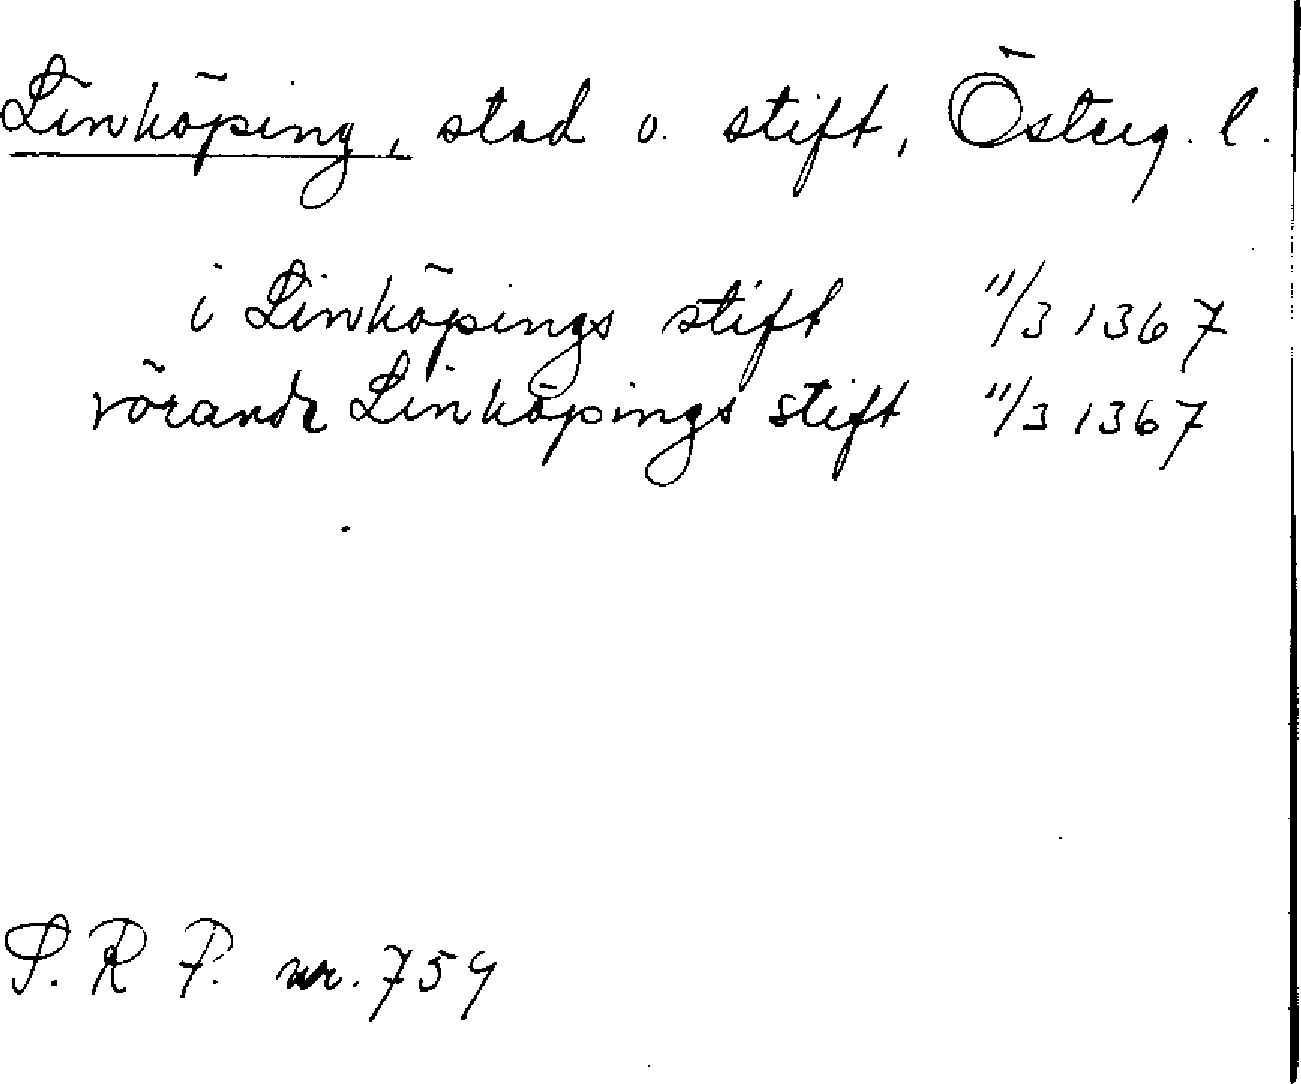 Linköping, stad o. stift, Österg. l.
i Linköpings stift 11/3 1367
rörande Linköpings stift 11/3 1367
S. R P. nr. 759